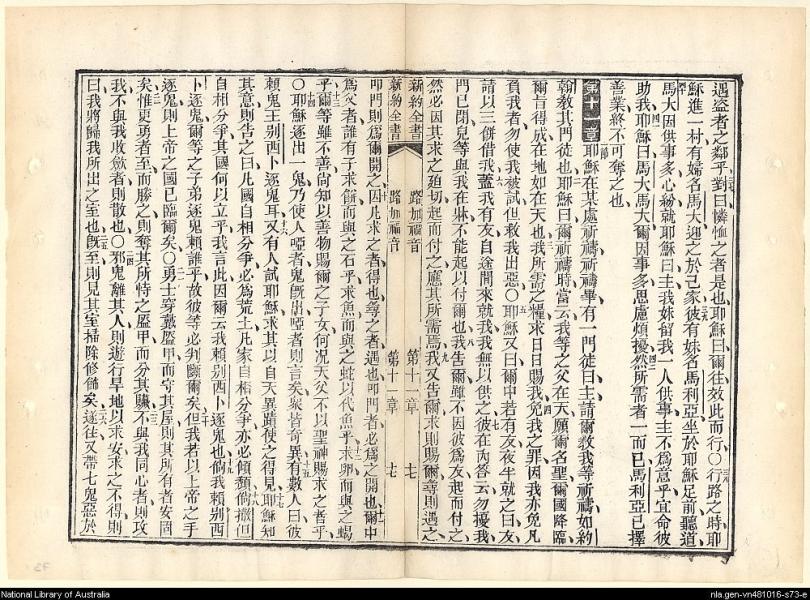 遇盜者之鄰乎對曰憐恤之者是也耶穌曰爾往效此而行〇行路之時耶
穌進一村有婦名馬大迎之於己家彼有妹名馬利亞坐於耶穌足前聽道
馬大因供事多心紛就耶穌曰主我妹留我一人供事主不爲意乎宜命彼
助我耶穌曰馬大馬大爾因事多思慮煩擾然所需者一而已馬利亞已擇
善業終不可奪之也
第十一章 耶穌在某處祈禱祈禱畢有一門徒曰主請爾教我等祈禱如約
翰教其門徒也耶穌曰爾祈禱時當云我等之父在天願爾名聖爾國降臨
爾旨得成在地如在天也我所需之糧求日日賜我免我之罪因我亦免凡
負我者勿使我被試但救我出惡〇耶穌又曰爾中若有友夜半就之曰友
請以三餅借我蓋我有友自途間來就我我無以供之彼在內答云勿擾我
門已閉兒等與我在牀不能起以付爾也我告爾雖不因彼爲友起而付之
然必因其求之迫切起而付之應其所需焉我又告爾求則賜爾尋則遇之
新約全書 路加福音 第十一章 七
新約全書 路加福音 第十一章 七
叩門則爲爾開之因凡求之者得也尋之者遇也叩門者必爲之開也爾中
爲父者誰有子求餅而與之石乎求魚而與之蛇以代魚乎求卵而與之蝎
乎爾等雖不善尚知以善物賜爾之子女何况天父不以聖神賜求之者乎
〇耶穌逐出一鬼乃使人啞者鬼旣出啞者則言矣衆皆奇異有數人曰彼
賴鬼王别西卜逐鬼耳又有人試耶穌求其以自天異蹟使之得見耶穌知
其意則告之曰凡國自相分爭必爲荒土凡家自相分爭亦必傾頽倘撒但
自相分爭其國何以立乎我言此因爾云我賴别西卜逐鬼也倘我賴别西
卜逐鬼爾等之子弟逐鬼賴誰乎故彼等必判斷爾矣但我若以上帝之手
逐鬼則上帝之國已臨爾矣〇勇士穿戴盔甲而守其屋則其所有者安固
矣惟更勇者至而勝之則奪其所恃之盔甲而分其贓不與我同心者則攻
我不與我收斂者則散也〇邪鬼離其人則遊行旱地以求安求之不得則
曰我將歸我所出之室也旣至則見其室掃除修飾矣遂往又帶七鬼惡於
National Library of Australia
nla.gen-vn481016-s73-e